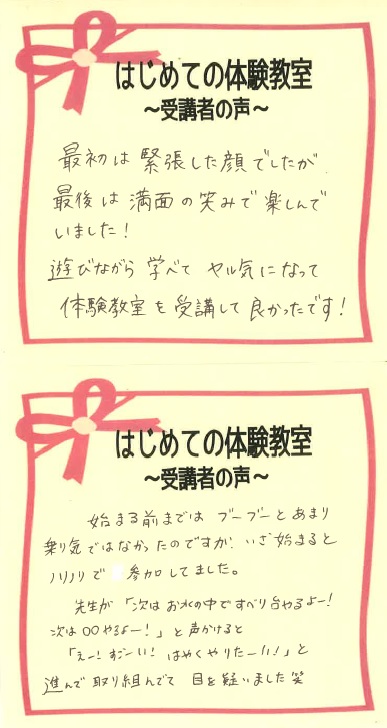 はじめての体験教室
～受講者の声～
最初は緊張した顔でしたが
最後は満面の笑みで楽しんで
いました!
遊びながら学べて ヤル気になって
体験教室を受講して良かったです!
はじめての体験教室
～受講者の声～
始まる前までは ブーブーとあまり
乗り気ではなかったのですが、いざ始まると
ノリノリで 参加してました。
先生が「次はお水の中ですべり台やるよー!
次は〇〇やるよー!」と声かけると
「えー!すごーい! はやくやりたーい!」と
進んで取り組んでて 目を疑いました笑